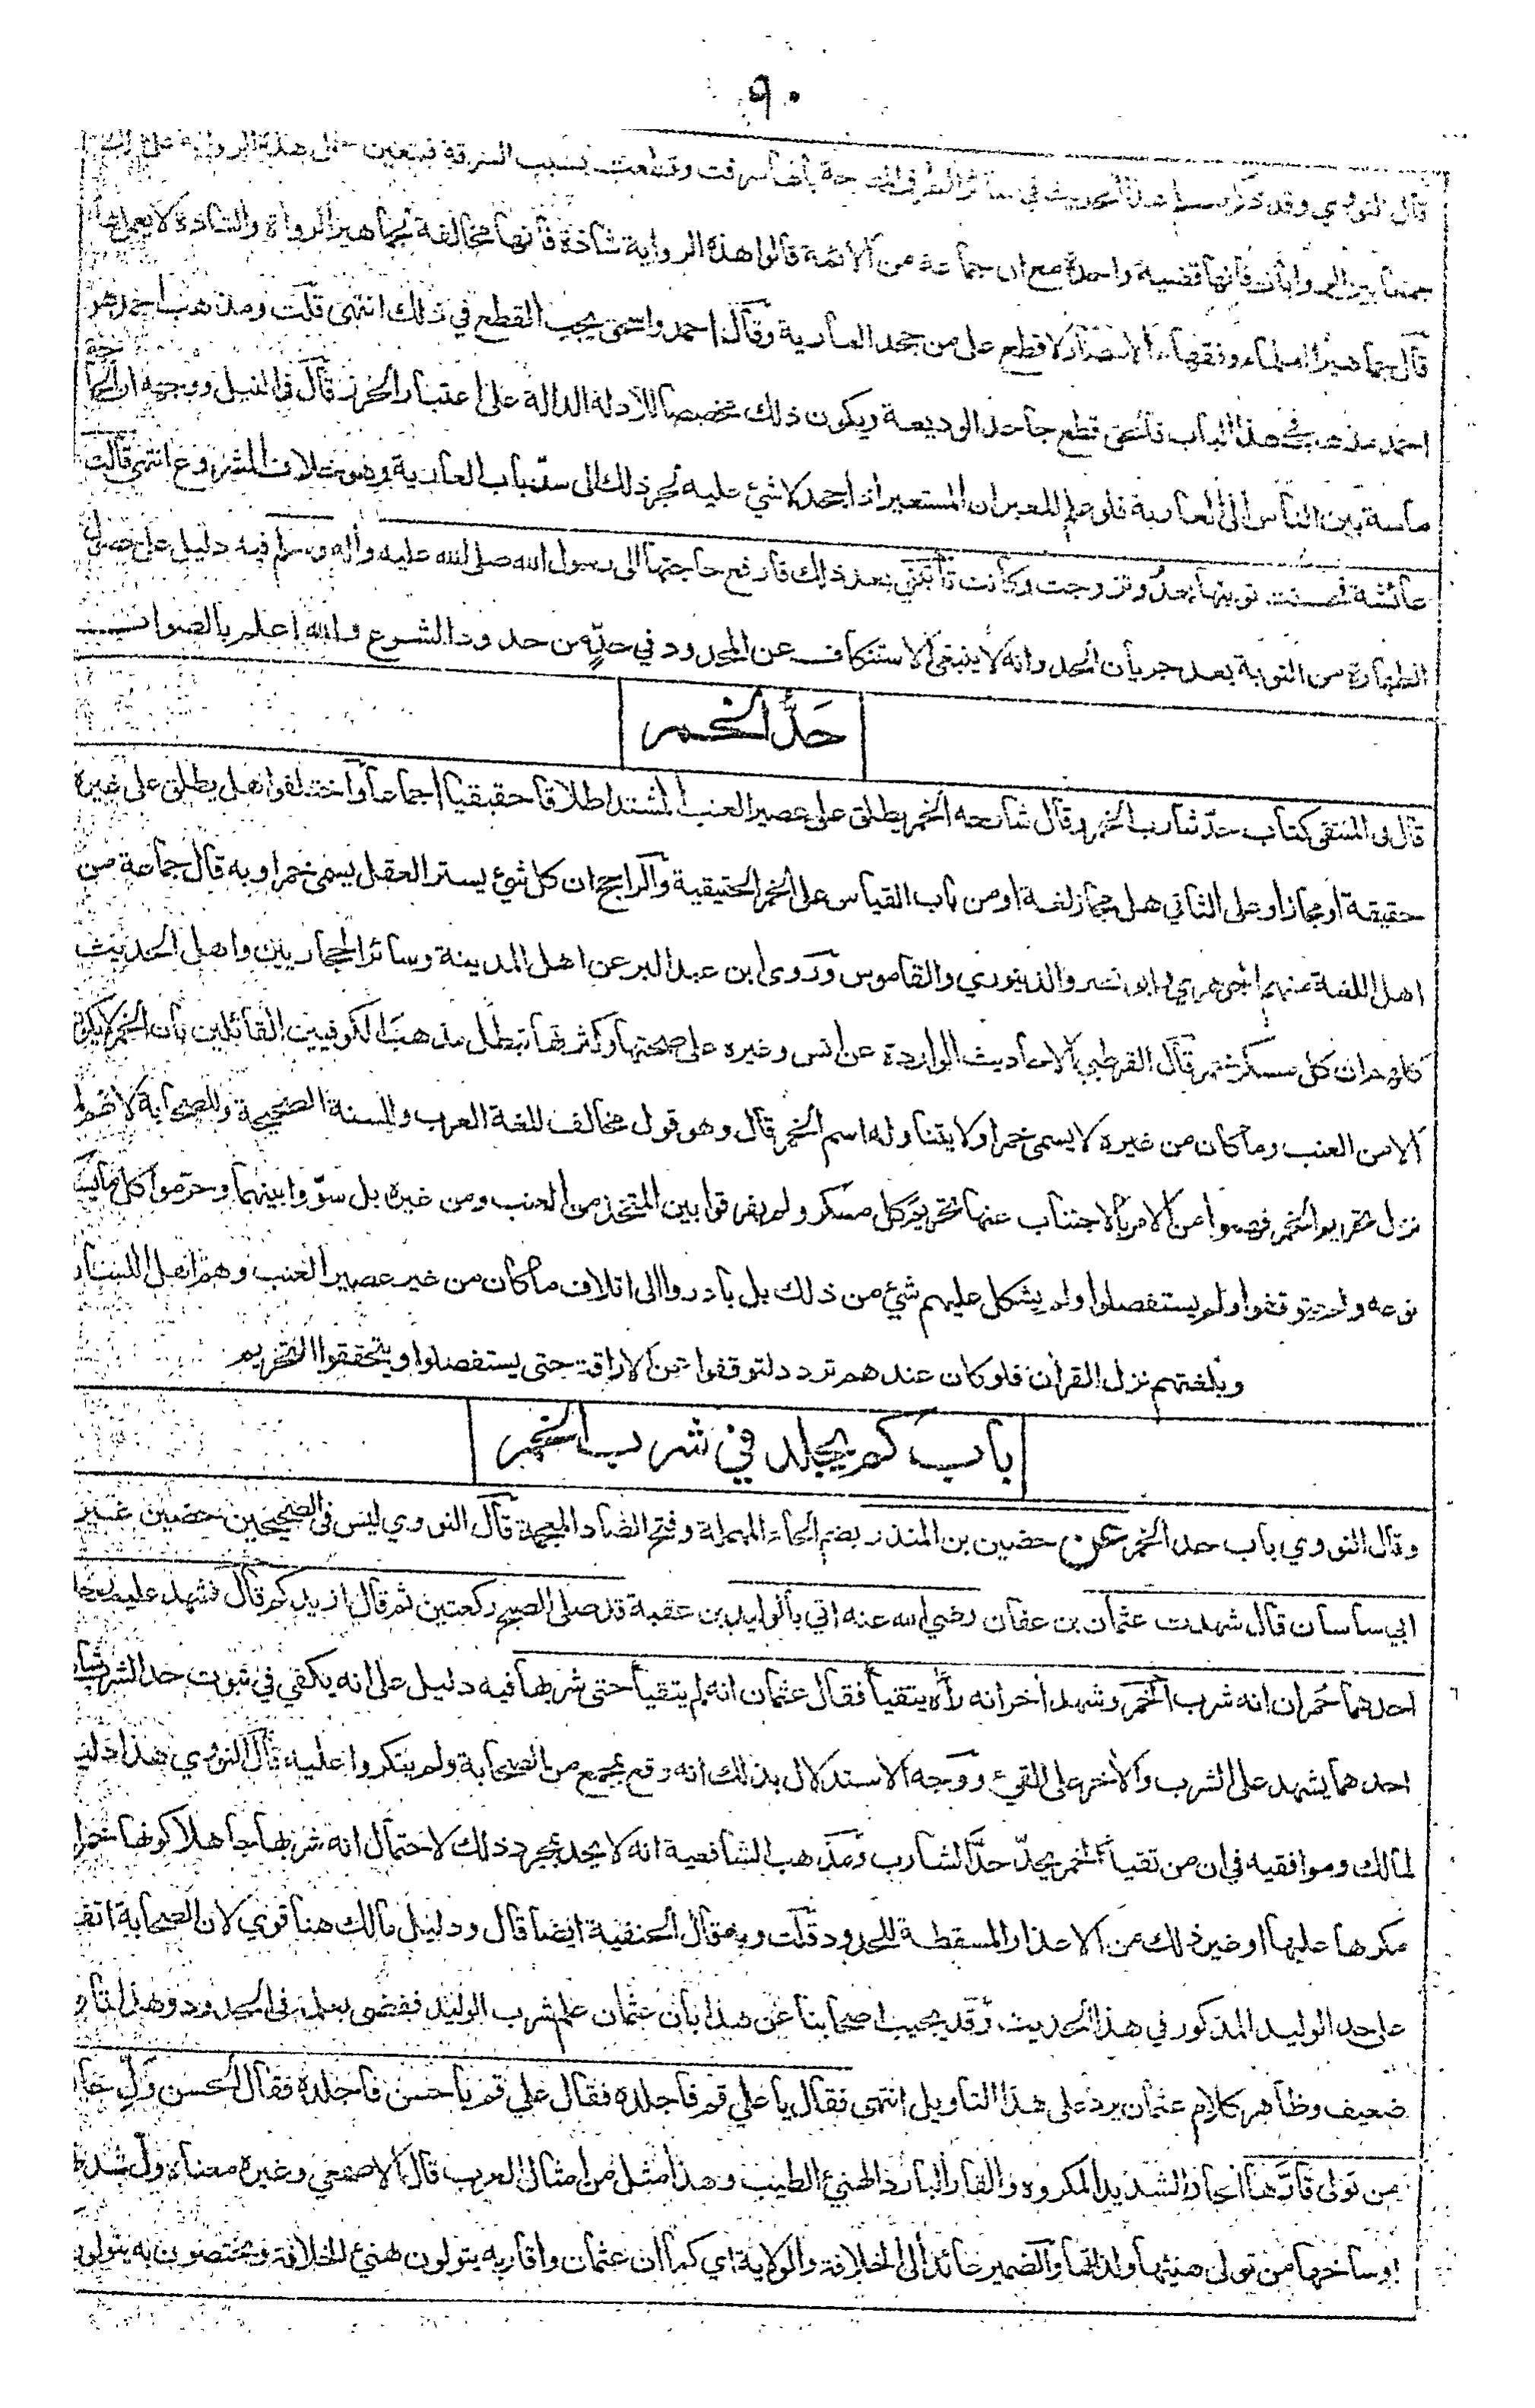 ٩٠
قال النووي وقد ذكر مسلم هذا الحديث في سائر الطرق المصرحة بأنها سرقت وقطعت بسبب السرقة فيتعين حمل هذه الرواية على ذلك
جمعا بين الروايات فانها قضية واحدة مع ان جماعة من الائمة قالوا هذه الرواية شاذة فأنها مخالفة لجماهير الرواة والشاذة لا يعمل بها
قال جماهير العلماء وفقهاء الامصار لا قطع على من جحد العارية وقال احمد واسحق يجب القطع في ذلك انتهى قلت ومذهب احمد هو
احمد مذهب في هذا الباب فالحق قطع جاحد الوديعة ويكون ذلك مخصصا للأدلة الدالة على اعتبار الحرز قال في النيل ووجهه ان الحاجة
ماسة بين الناس الى العارية فلو علم المعير ان المستعير اذا جحد لا شئ عليه لجر ذلك الى سد باب العارية وهو خلاف المشروع انتهى قالت
عائشة فحسنت توبتها بعد وتزوجت وكانت تأتيني بعد ذلك فارفع حاجتها الى رسول الله صلى الله عليه وأله وسلم فيه دليل على حصول
الطهارة من التوبة بعد جريأن الحد وانه لا ينبغي الاستنكاف عن المحدود في حدٍّ من حدود الشرع والله اعلم بالصواب
حَدُّ الخمر
قال في المنتقى كتاب حدّ شارب الخمر وقال شارحه الخمر يطلق على عصير العنب المشتد اطلاقا حقيقيا اجماعا واختلفوا هل يطلق على غيره
حقيقة او مجازا وعلى الثاني هل مجاز لغة او من باب القياس على الخمر الحقيقية والراجح ان كل شئ يستر العقل يسمى خمرا وبه قال جماعة من
اهل اللغة منهم الجوهري وابو نصر والدينوري والقاموس وروى ابن عبد البر عن اهل المدينة وسائر الحجازيين واهل الحديث
كلهم ان كل مسكر خمر قال القرطبي الاحاديث الواردة عن انس وغيره على صحتها وكثرتها تبطل مذهب الكوفيين القائلين بان الخمر لا يكون
الا من العنب وما كان من غيره لا يسمى خمرا ولا يتناوله اسم الخمر قال وهو قول مخالف للغة العرب وللسنة الصحيحة وللصحابة لانهم لما
نزل تحريم الخمر فهموا من الامر بالاجتناب عنها تحريم كل مسكر ولم يفرقوا بين المتخذ من العنب ومن غيره بل سوّوا بينهما وحرّموا كل ما يسكر
نوعه ولم يتوقفوا ولم يستفصلوا ولم يشكل عليهم شئ من ذلك بل بادروا الى اتلاف ما كان من غير عصير العنب وهم اهل اللسان
وبلغتهم نزل القرأن فلو كان عندهم تردد لتوقفوا عن الاراقة حتى يستفصلوا ويتحققوا التحريم
باب كم يجلد في شرب الخمر
وقال النووي باب حد الخمر عن حضين بن المنذر بضم الحاء المهملة وفتح الضاد المعجمة قال النووي ليس في الصحيحين حضين غير
ابي ساسان قال شهدت عثمان بن عفان رضي الله عنه اتي بالوليد بن عقبة قد صلى الصبح ركعتين ثم قال ازيدكم قال فشهد عليه رجلا
احدهما حمران انه شرب الخمر وشهد أخر انه رأه يتقيأ فقال عثمان انه لم يتقيأ حتى شربها فيه دليل على انه يكفي في ثبوت حد الشرب شا
احدهما يشهد على الشرب والأخر على القيء ووجه الاستدلال بذلك انه وقع بمجمع من الصحابة ولم ينكروا عليه قال النووي هذا دليل
لمالك وموافقيه في ان من تقيأ الخمر يحدّ حدّ الشارب ومذهب الشافعية انه لا يحد بمجرد ذلك لاحتمال انه شربها جاهلا كونها خمرا
مكرها عليها او غير ذلك من الاعذار المسقطة للحدود قلت وبه قال الحنفية ايضا قال ودليل مالك هنا قوي لان الصحابة اتفـ
على حد الوليد المذكور في هذا الحديث وقد يجيب اصحابنا عن هذا بأن عثمان علم شرب الوليد فقضى بعلمه في الحدود وهذا تأو
ضعيف وظاهر كلام عثمان يرد على هذا التأويل انتهى فقال يا علي قم فأجلده فقال علي قم يا حسن فأجلده فقال الحسن ولّ حا
من تولى قارّها الحار الشديد المكروه والقار البارد الهنئ الطيب وهذا مثل من امثال العرب قال الاصمعي وغيره معناه ولّ شدتها
اوساخها من تولى هنيئها ولذاتها والضمير عائد الى الخلافة والولاية اي كما ان عثمان واقاربه يتولون هنئ الخلافة ويختصون به يتولون